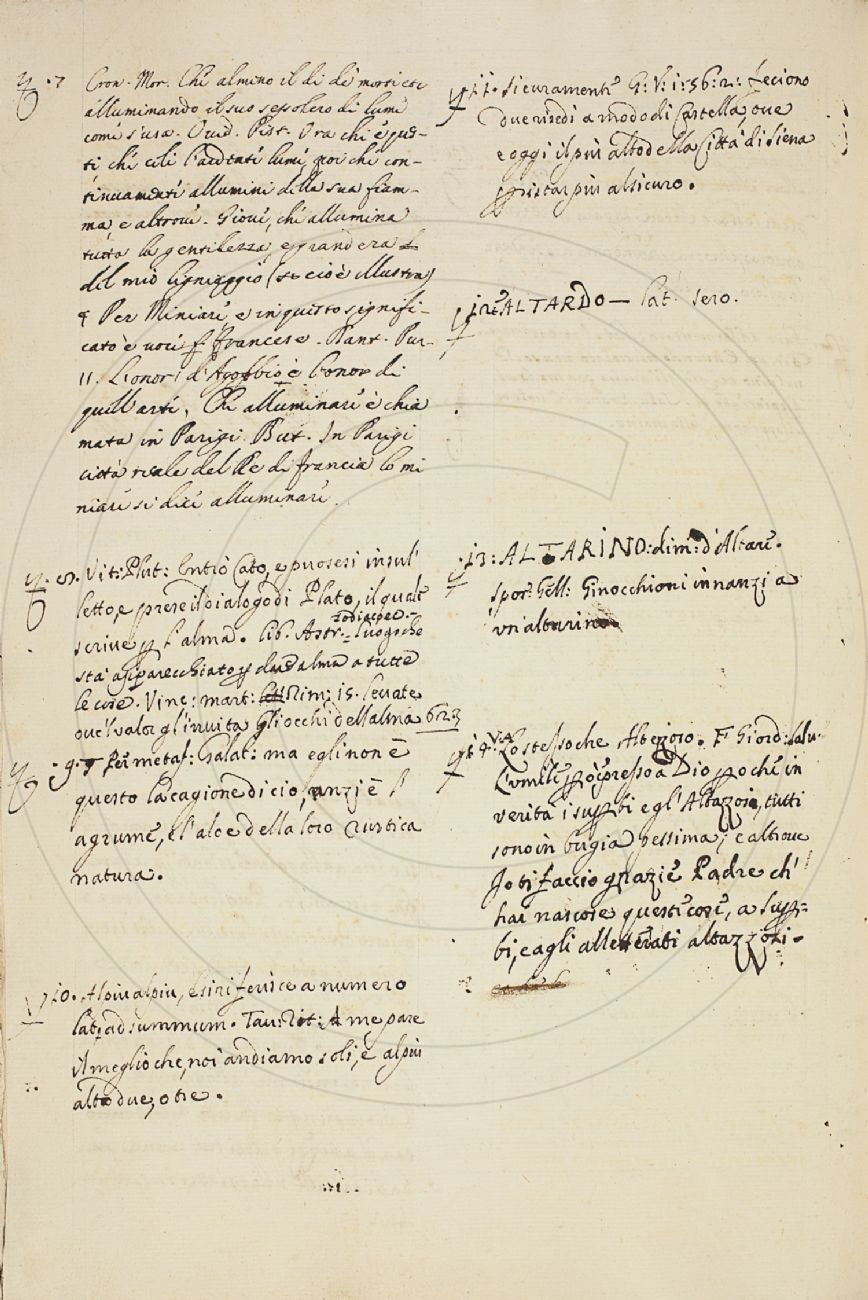 7. Cron. Mor. Chi almeno il di de' morti etc
alluminando il suo sepolcro di lumi
come s'usa. Ovid. Pist. Ora chi è ques-
ti che celi l'acetati lumi, poi che con-
tinuamenti allumini della sua fiam-
ma, e altrove. Giove, che allumina
tutta la gentilezza, e grandezza
del mio lignaggio (cioè illustra)
¶ Per Miniare, e in questo signifi-
cato è voce francese. Dant. Pur.
11. L'onor d'Agobbio è l'onor di
quell'arte, Che alluminare è chia
mata in Parigi. But. In Parigi
città reale del Re di Francia lo mi
niare si dice alluminare.
8. Vit: Plut: Entrò Cato, e puosesi in sul
letto, e prese il dialogo di Plato, il quale
scrive p l'alma. Lib. Astr.
luogo che
sta apparecchiato p dare alma a tutte
le cose. Vinc: mart: Rim: 15. levate
ove 'l valor gl'invita gli occhi dell'alma
9. ¶ Per metaf: Galat: ma egli non è
questo la cagione di cio, anzi è l'
agrume, e l'aloe della loro rustica
natura.
10. Al piu al piu, e si riferisce a numero
lat: ad summum. A me pare
il meglio che, noi andiamo soli, e al piu
alto due, o tre.
11. sicuramente G: V: 1: 56: 2: feciono
due risedi a modo di Castella, ove
e oggi il più alto della Città di Siena
p istar più al sicuro.
12. ALTARDO — Lat: sero.
13: ALTARINO: dim: d'Altare.
spor: Gell: Ginocchioni innanzi a
un altarino.
14. Lo stesso che Altezzoso. F Giord:
L'umile, è presso a Dio, po che in
verità i supbi e gl'Altazzosi, tutti
sono in bugia pessima; e altrove
Jo ti faccio grazie Padre ch'
hai nascose queste cose, a supp-
bi, e agli alletterati altazzosi.